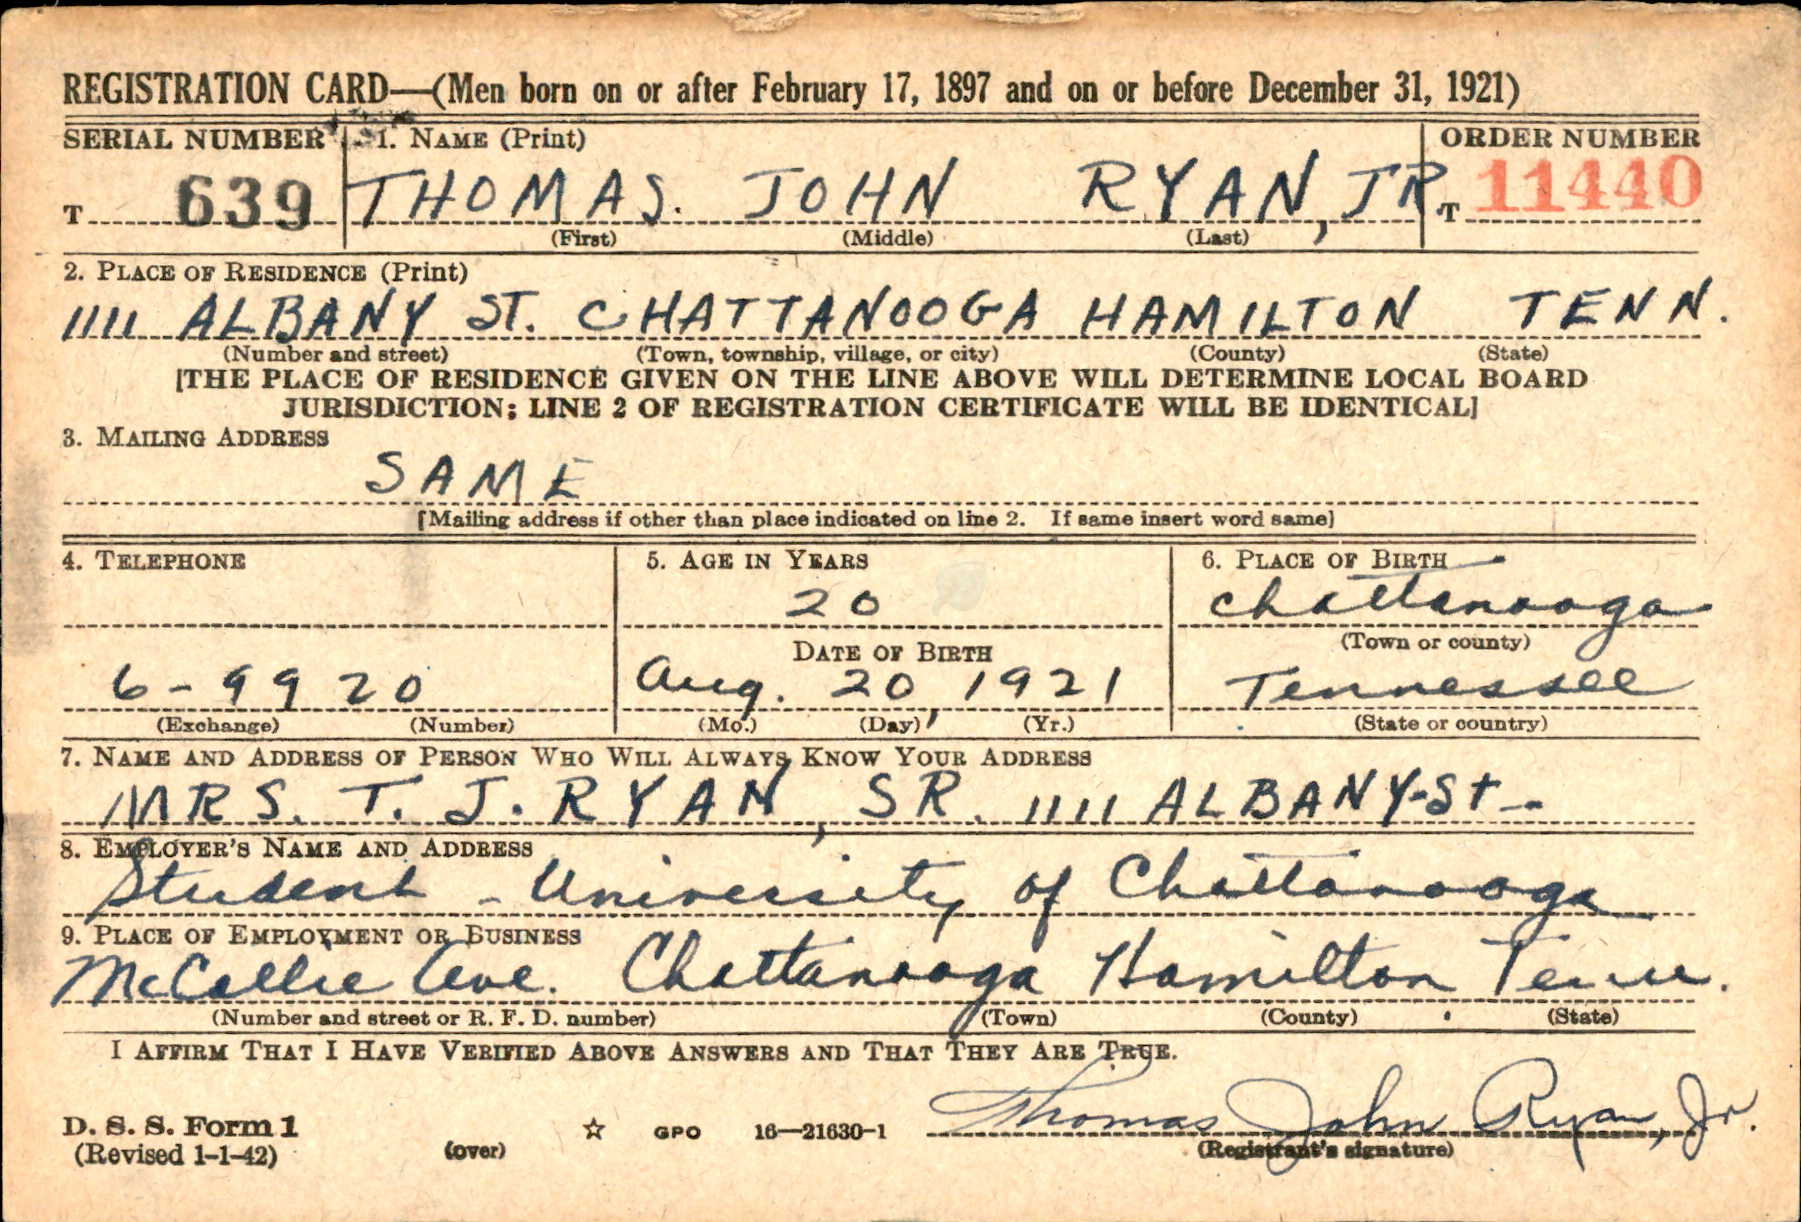 REGISTRATION CARD—(Men born on or after February 17, 1897 and on or before December 31, 1921)
SERIAL NUMBER 1. NAME (Print) ORDER NUMBER
T 639 THOMAS. JOHN RYAN, JR. T 11440
(First) (Middle) (Last)
2. PLACE OF RESIDENCE (Print)
1111 ALBANY ST. CHATTANOOGA HAMILTON TENN.
(Number and street) (Town, township, village, or city) (County) (State)
[THE PLACE OF RESIDENCE GIVEN ON THE LINE ABOVE WILL DETERMINE LOCAL BOARD
JURISDICTION; LINE 2 OF REGISTRATION CERTIFICATE WILL BE IDENTICAL]
3. MAILING ADDRESS
SAME
[Mailing address if other than place indicated on line 2. If same insert word same]
4. TELEPHONE 5. AGE IN YEARS 6. PLACE OF BIRTH
20 Chattanooga
DATE OF BIRTH (Town or county)
6-9920 Aug. 20, 1921 Tennessee
(Exchange) (Number) (Mo.) (Day) (Yr.) (State or country)
7. NAME AND ADDRESS OF PERSON WHO WILL ALWAYS KNOW YOUR ADDRESS
MRS. T. J. RYAN, SR. 1111 ALBANY-St-
8. EMPLOYER'S NAME AND ADDRESS
Student - University of Chattanooga
9. PLACE OF EMPLOYMENT OR BUSINESS
McCallie Ave. Chattanooga Hamilton Tenn.
(Number and street or R. F. D. number) (Town) (County) (State)
I AFFIRM THAT I HAVE VERIFIED ABOVE ANSWERS AND THAT THEY ARE TRUE.
Thomas John Ryan, Jr.
D. S. S. Form 1 (over) ☆ GPO 16—21630-1 (Registrant's signature)
(Revised 1-1-42)